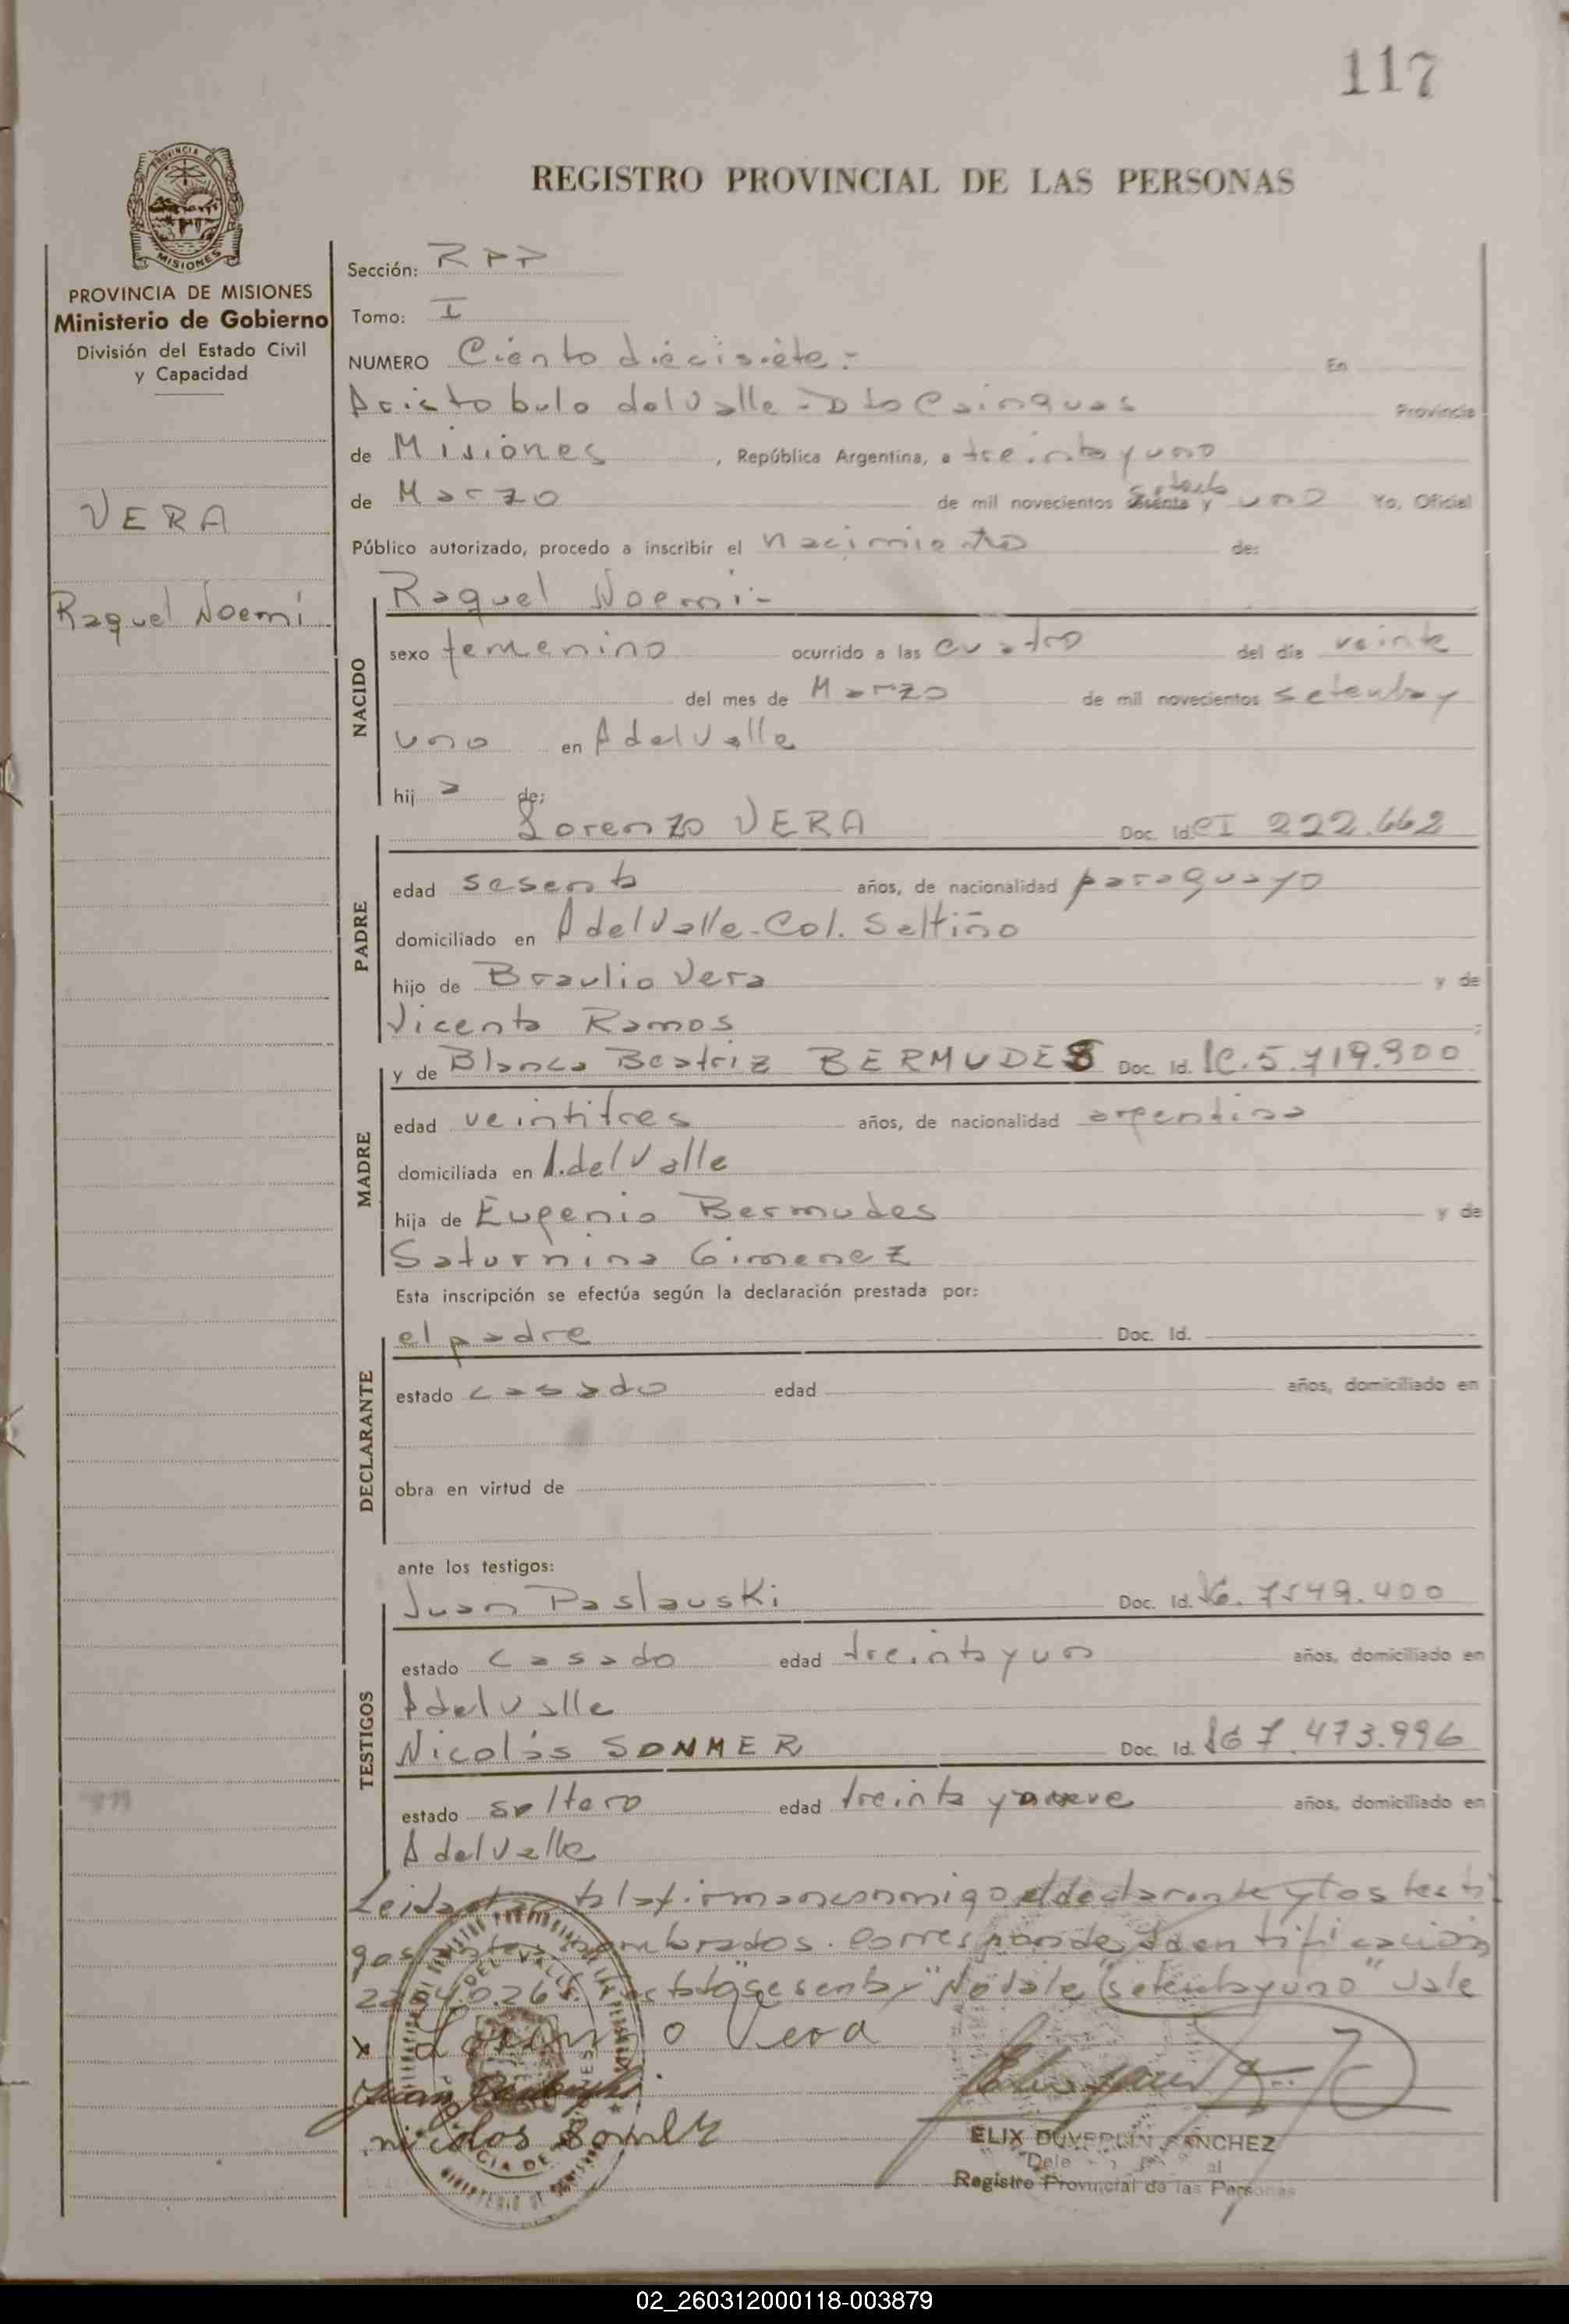 117
REGISTRO PROVINCIAL DE LAS PERSONAS
PROVINCIA DE MISIONES
Ministerio de Gobierno
División del Estado Civil
y Capacidad
VERA
Raquel Noemí
Sección: RPP
Tomo: I
NUMERO Ciento diecisiete.- En
Aristobulo del Valle - Dto Cainguas Provincia
de Misiones, República Argentina, a treinta y uno
de Marzo de mil novecientos sesenta y setenta uno Yo, Oficial
Público autorizado, procedo a inscribir el nacimiento de:
NACIDO
Raquel Noemi.-
sexo femenino ocurrido a las cuatro del día veinte
del mes de Marzo de mil novecientos setenta y
uno en A del Valle
hij a de:
PADRE
Lorenzo VERA Doc. Id. CI 222.662
edad sesenta años, de nacionalidad paraguayo
domiciliado en A del Valle - Col. Saltiño
hijo de Braulio Vera y de
Vicenta Ramos
MADRE
y de Blanca Beatriz BERMUDES Doc. Id. lC. 5.719.900
edad veintitres años, de nacionalidad argentina
domiciliada en A. del Valle
hija de Eugenio Bermudes y de
Saturnina Gimenez
Esta inscripción se efectúa según la declaración prestada por:
DECLARANTE
el padre Doc. Id.
estado casado edad años, domiciliado en
obra en virtud de
ante los testigos:
TESTIGOS
Juan Paslauski Doc. Id. 7549.400
estado casado edad treinta y un años, domiciliado en
A del Valle
Nicolás SOMMER Doc. Id. 7.473.996
estado soltero edad treinta y nueve años, domiciliado en
A del Valle
Leida acta la firman conmigo el declarante y los testi
gos antes nombrados. Corresponde Identificación
"sesenta y" No vale "setenta y uno" vale
x Lorenzo Vera
nicolos Somer
ELIX DUVERLIN SANCHEZ
Registro Provincial de las Personas
02_260312000118-003879